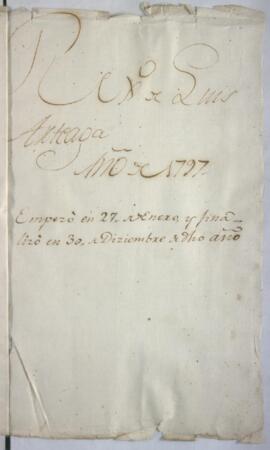 R. No. de Luis
Arteaga
Año de 1797
Empezó en 27. de Enero, y fina_
lizó en 30. de Diziembre de dho año